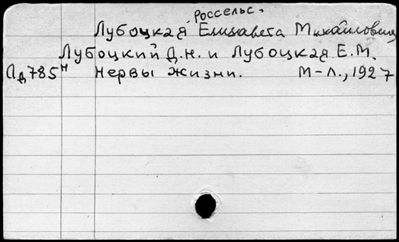 Россельс.
Лубоцкая Елизавета Михайловна
Лубоцкий Д.Н. и Лубоцкая Е.М.
Пд785н Нервы жизни. М-Л., 1927